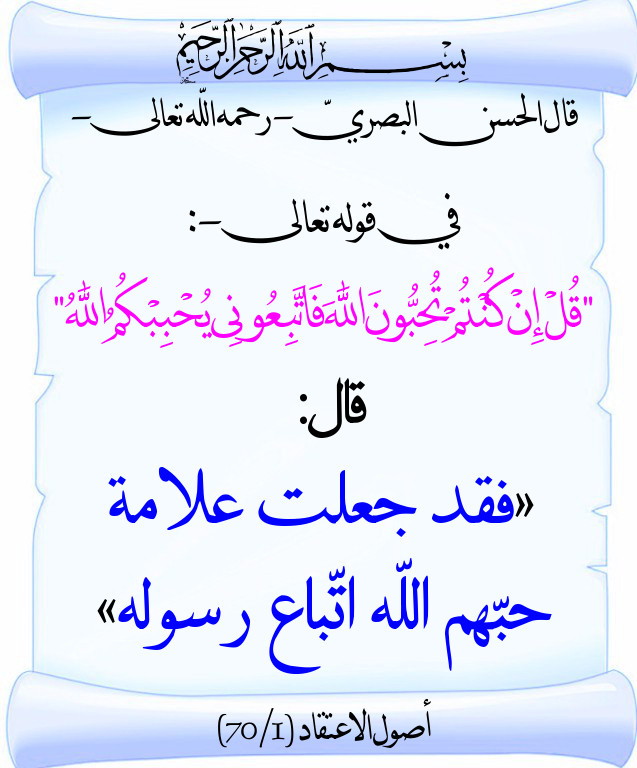 بِسْمِ اللَّهِ الرَّحْمَٰنِ الرَّحِيمِ
قال الحسن البصريّ - رحمه اللّه تعالى -
في قوله تعالى -:
"قُلْ إِنْ كُنْتُمْ تُحِبُّونَ اللَّهَ فَاتَّبِعُونِي يُحْبِبْكُمُ اللَّهُ"
قال:
«فقد جعلت علامة
حبّهم اللّه اتّباع رسوله»
أصول الاعتقاد (70/1)